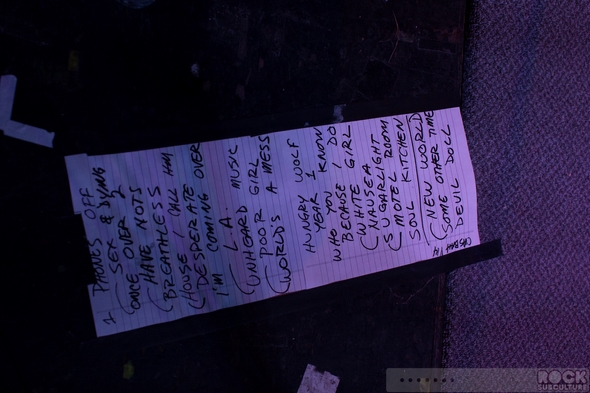 1 PHONES OFF
SEX & DYING
ONCE OVER 2
HAVE NOTS
BREATHLESS
HOUSE I CALL HOME
DESPERATE
I'M COMING OVER
L.A.
UNHEARD MUSIC
POOR GIRL
WORLDS A MESS
HUNGRY WOLF
YEAR 1
WHO YOU KNOW
BECAUSE I DO
WHITE GIRL
NAUSEA
SUGARLIGHT
MOTEL ROOM
SOUL KITCHEN
NEW WORLD
SOME OTHER TIME
DEVIL DOLL
CASBAH
ROCK
SUBCULTURE